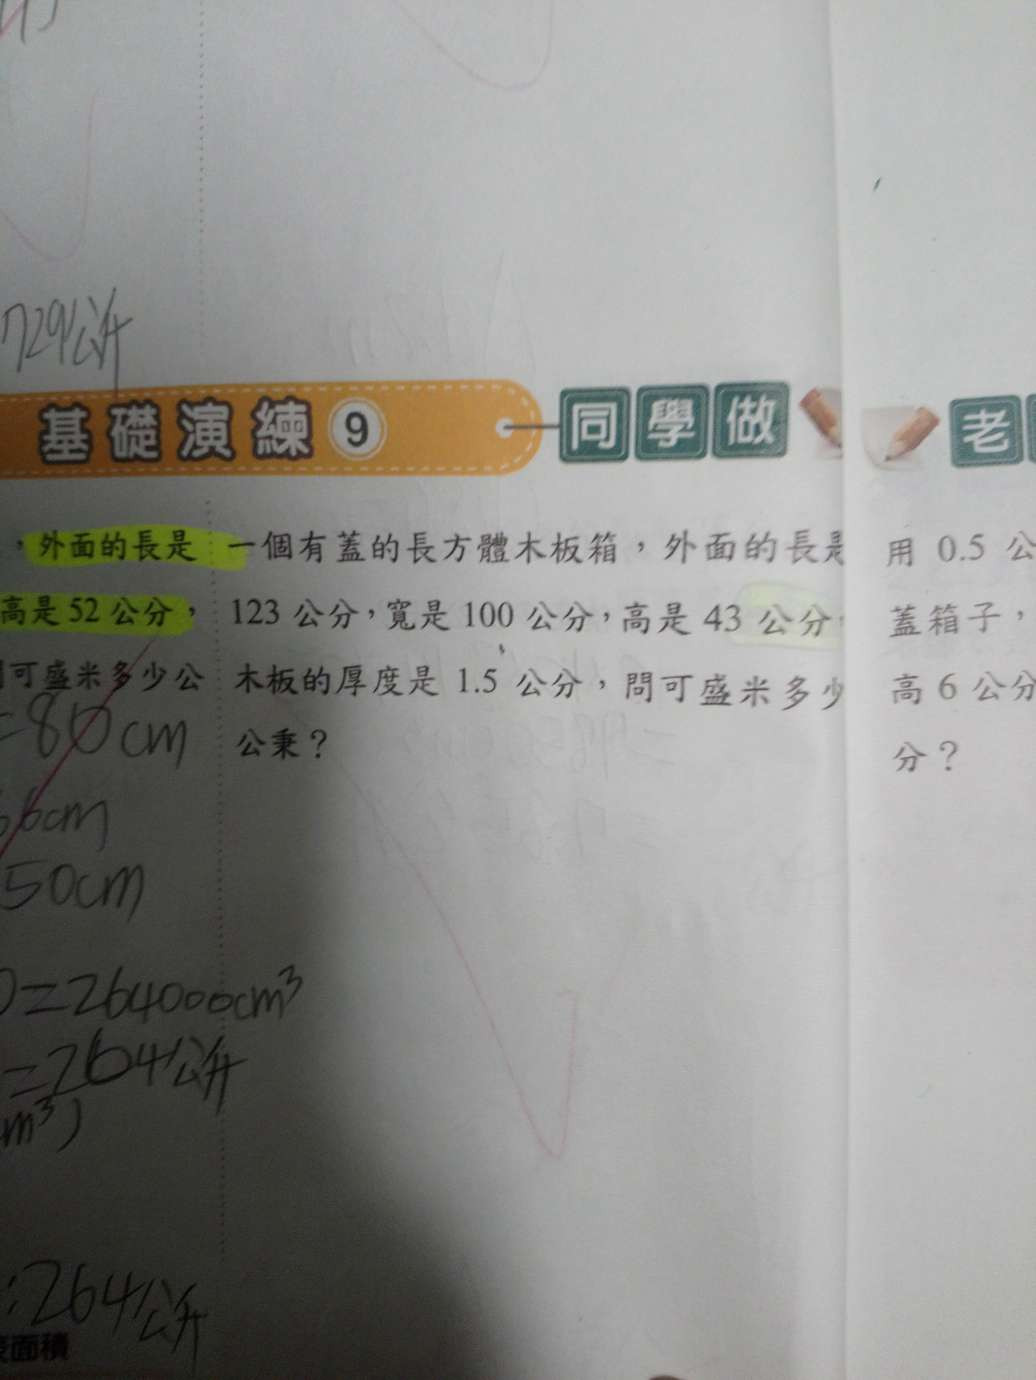 729公升
基礎演練⑨ 同學做 老
，外面的長是
高是52公分，
可盛米多少公
=80cm
6cm
50cm
=264000cm³
=264公升
m³)
264公升
面積
一個有蓋的長方體木板箱，外面的長是
123公分，寬是100公分，高是43公分，
木板的厚度是1.5公分，問可盛米多少
公秉？
用0.5公
蓋箱子，
高6公分
分？